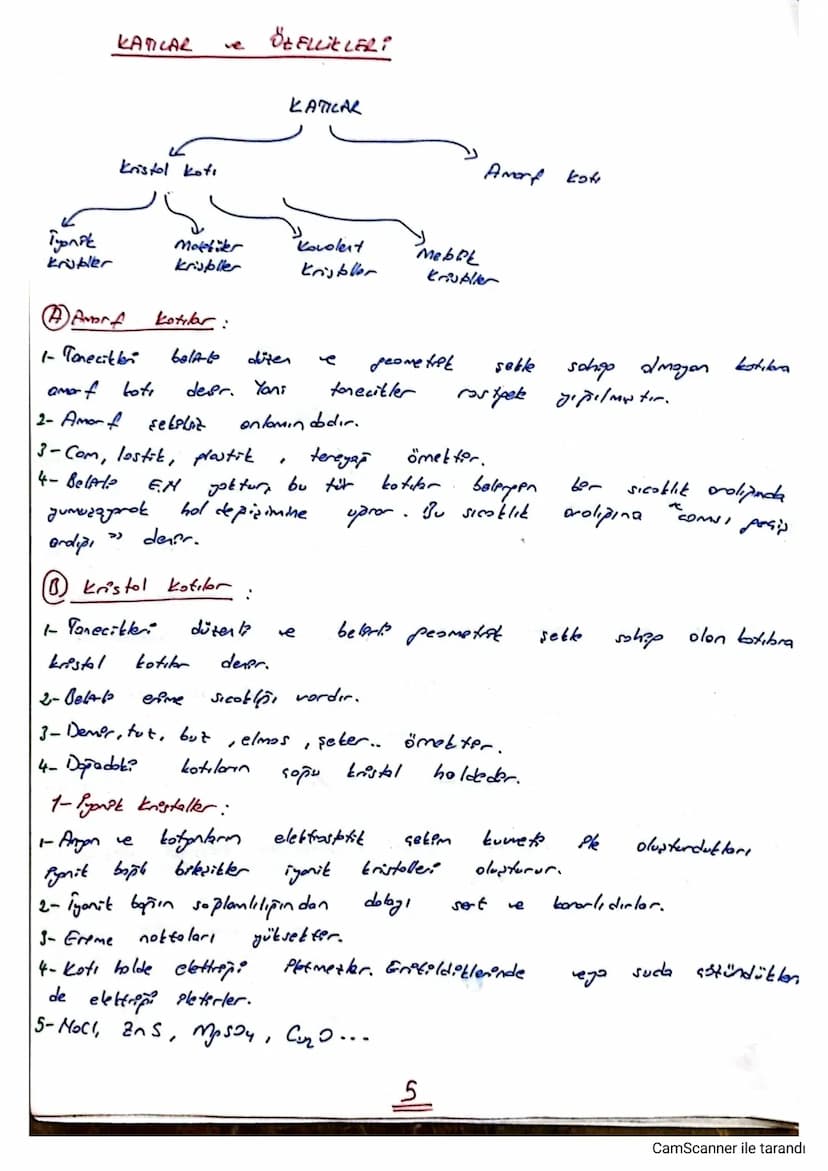 KATILAR ve ÖZELLİKLERİ
KATILAR
Kristal katı
Amorf katı
İyonik Moleküler Kovalent Metalik
kristaller kristaller kristaller kristaller
A Amorf Katılar :
1- Tanecikleri belirli düzen ve geometrik şekle sahip olmayan katılara
amorf katı denir. Yani tanecikler rastgele yığılmıştır.
2- Amorf şekilsiz anlamındadır.
3- Cam, lastik, plastik, tereyağ örnektir.
4- Belirli E.N yoktur, bu tür katılar belirgen bir sıcaklık aralığında
yumuşayarak hal değişimine uğrar. Bu sıcaklık aralığına "camsı geçiş
aralığı" denir.
B Kristal Katılar :
1- Tanecikleri düzenli ve belirli geometrik şekle sahip olan katılara
kristal katılar denir.
2- Belirli erime sıcaklığı vardır.
3- Demir, tuz, buz, elmas, şeker.. örnektir.
4- Doğadaki katıların çoğu kristal haldedir.
1- İyonik Kristaller :
1- Anyon ve katyonların elektrostatik çekim kuvveti ile oluşturdukları
iyonik bağlı bileşikler iyonik kristalleri oluşturur.
2- İyonik bağın sağlamlılığından dolayı sert ve kararlıdırlar.
3- Erime noktaları yüksektir.
4- Katı halde elektriği iletmezler. Eritildiklerinde veya suda çözündükleri
de elektriği iletirler.
5- NaCl, ZnS, MgSO4, Cu2O...
5
CamScanner ile tarandı